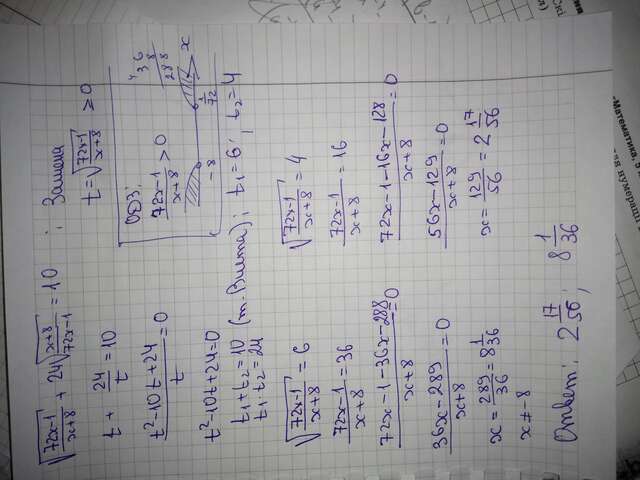 √(72x-1/x+8) + 24√(x+8/72x-1) = 10 ; Замена
t = √(72x-1/x+8) ≥ 0
t + 24/t = 10
t²-10t+24/t = 0
t²-10t+24=0
t₁+t₂=10
t₁·t₂=24 (т. Виета); t₁=6; t₂=4
ОДЗ:
72x-1/x+8 > 0
-8 1/72 x
4
36
8
288
√(72x-1/x+8) = 6
72x-1/x+8 = 36
72x-1-36x-288/x+8 = 0
36x-289/x+8 = 0
x = 289/36 = 8 1/36
x≠-8
√(72x-1/x+8) = 4
72x-1/x+8 = 16
72x-1-16x-128/x+8 = 0
56x-129/x+8 = 0
x = 129/56 = 2 17/56
Ответ: 2 17/56; 8 1/36